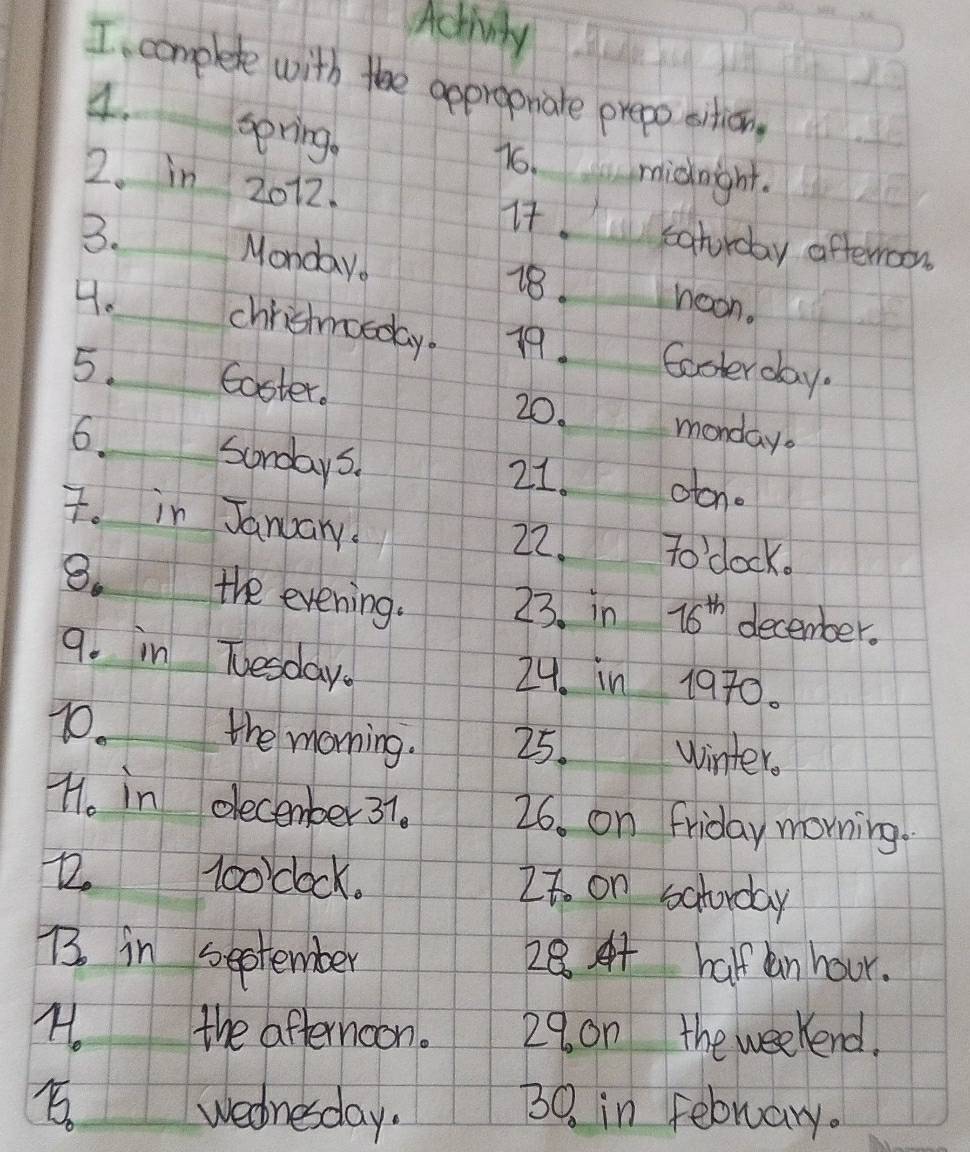 Activity
I. complete with the appropriate preposition.
1. ____ spring.
2. in 2012.
3. ____ Monday.
4. ____ christmasday.
5. ____ Easter.
6. ____ Sundays.
7. in January.
8. ____ the evening.
9. in Tuesday.
10. ____ the morning.
11. in december 31.
12. ____ 10o'clock.
13. in september
14. ____ the afternoon.
15. ____ wednesday.
16. ____ midnight.
17. ____ saturday afternoon.
18. ____ noon.
19. ____ Easterday.
20. ____ monday.
21. ____
22. ____ 7o'clock.
23. in 16th december.
24. in 1970.
25. ____ Winter.
26. on Friday morning.
27. on saturday
28. At half an hour.
29. on the weekend.
30. in February.